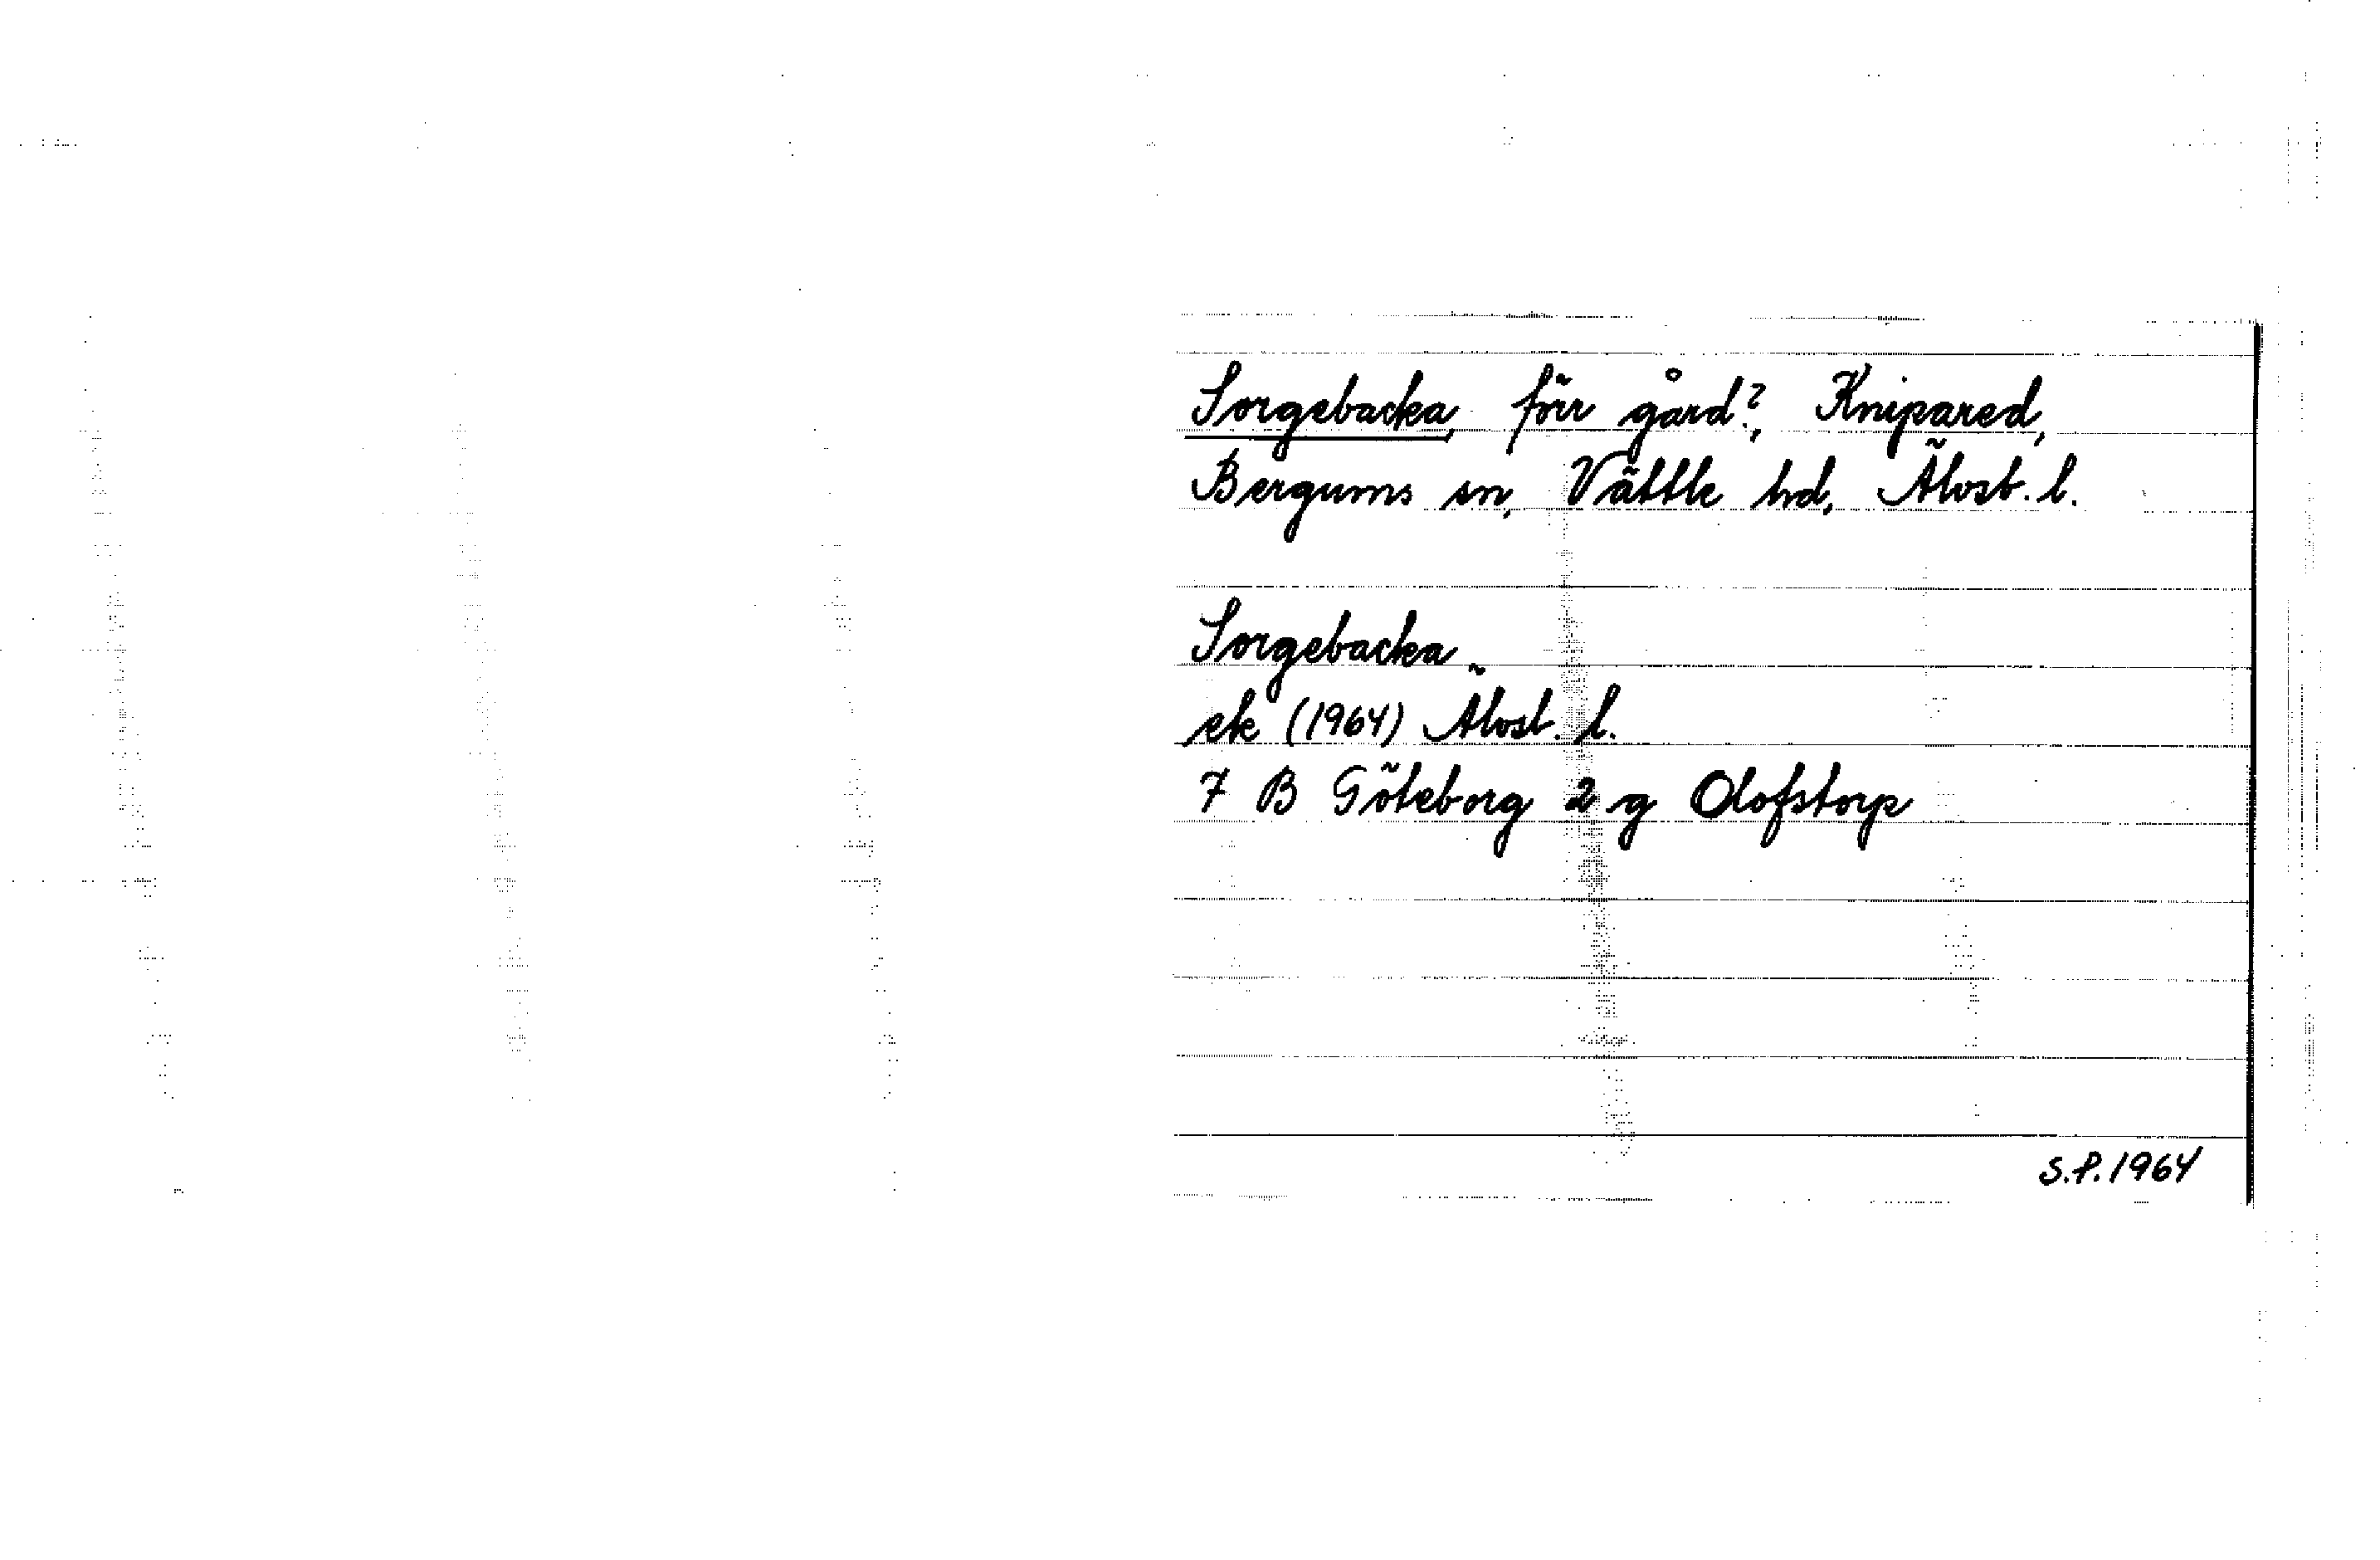 Sorgebacka, förr gård?, Knipared,
Bergums sn, Vättle hd, Älvsb. l.
Sorgebacka
ek (1964) Älvsb. l.
7 B Göteborg 2 g Olofstorp
S.P. 1964